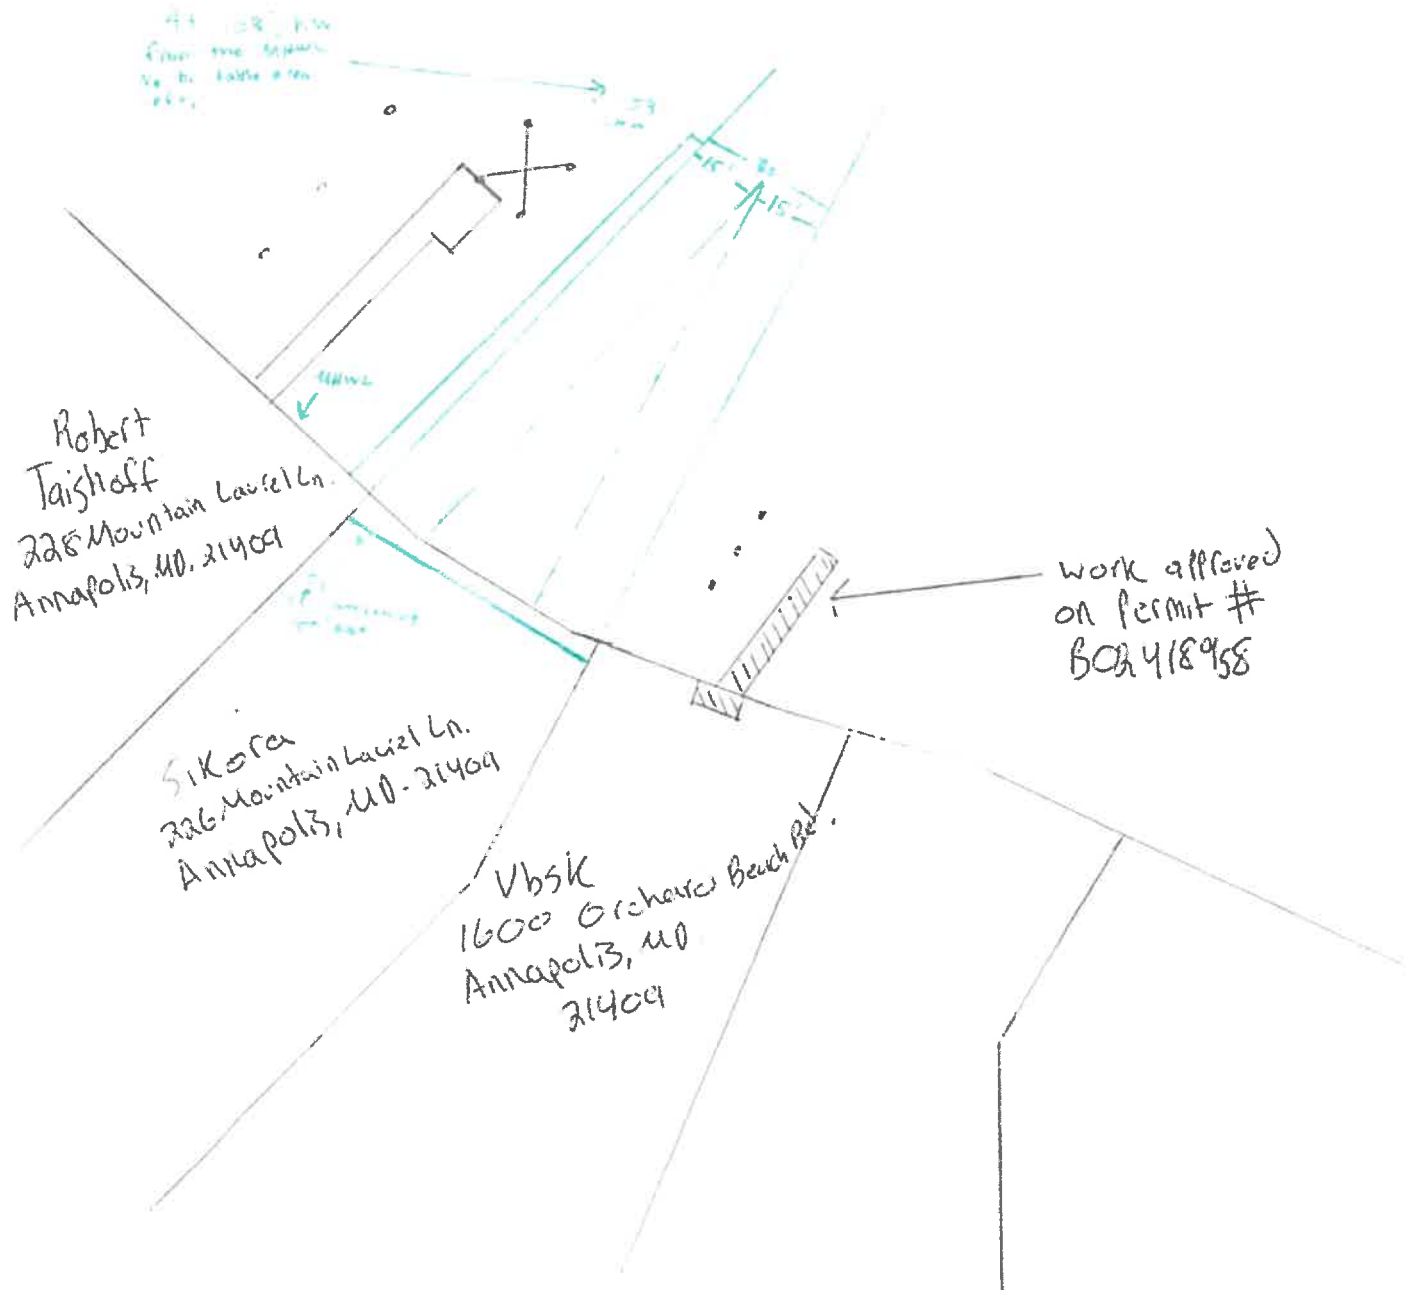 from the MHWL
15'
30
15'
MHWL
Robert
Taishoff
228 Mountain Laurel Ln.
Annapolis, MD. 21409
work approved
on Permit #
B02418958
Sikora
226 Mountain Laurel Ln.
Annapolis, MD. 21409
1600 Orchard Beach Rd.
Annapolis, MD
21409